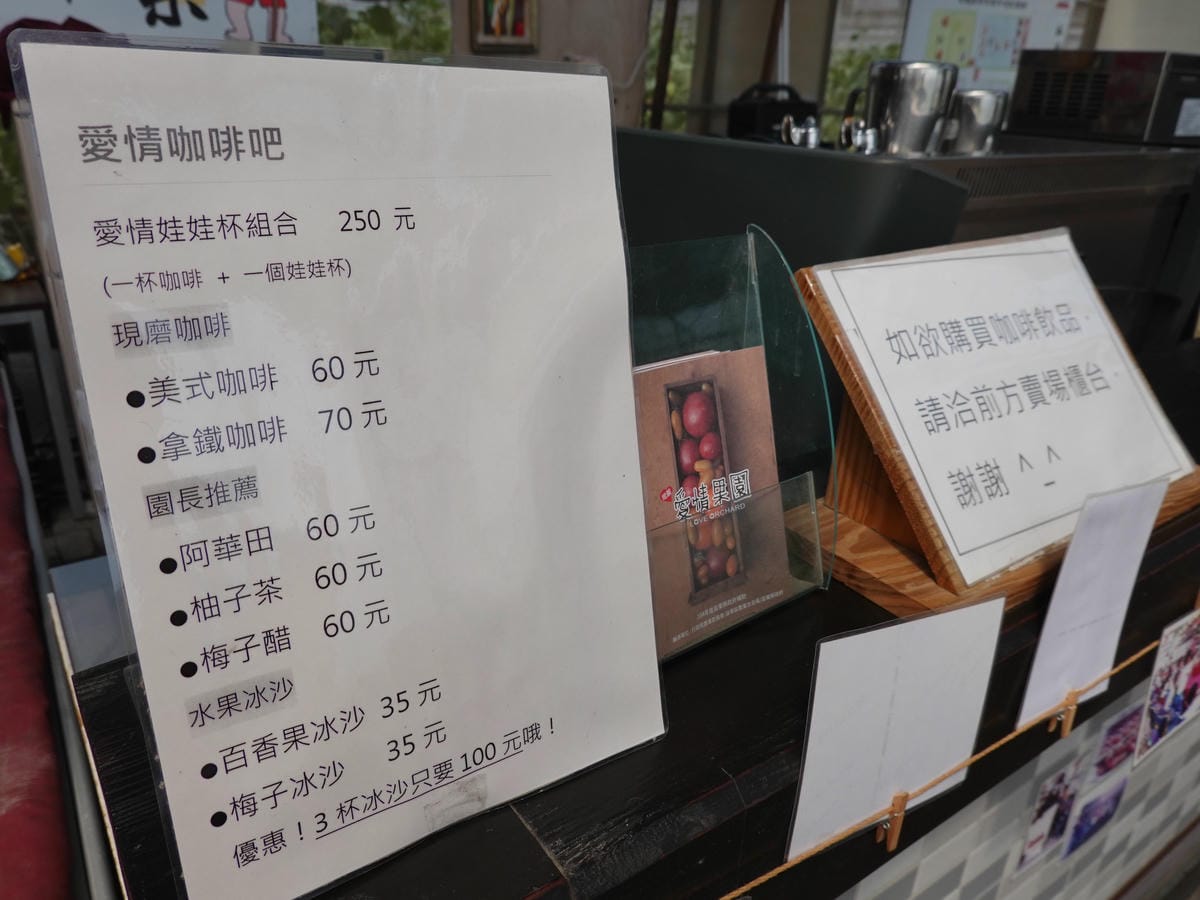 愛情咖啡吧
愛情娃娃杯組合 250 元
(一杯咖啡 + 一個娃娃杯)
現磨咖啡
●美式咖啡 60 元
●拿鐵咖啡 70 元
園長推薦
●阿華田 60 元
●柚子茶 60 元
●梅子醋 60 元
水果冰沙
●百香果冰沙 35 元
●梅子冰沙 35 元
優惠！3 杯冰沙只要 100 元哦！
愛情果園
LOVE ORCHARD
如欲購買咖啡飲品，
請洽前方賣場櫃台。
謝謝 ^_^